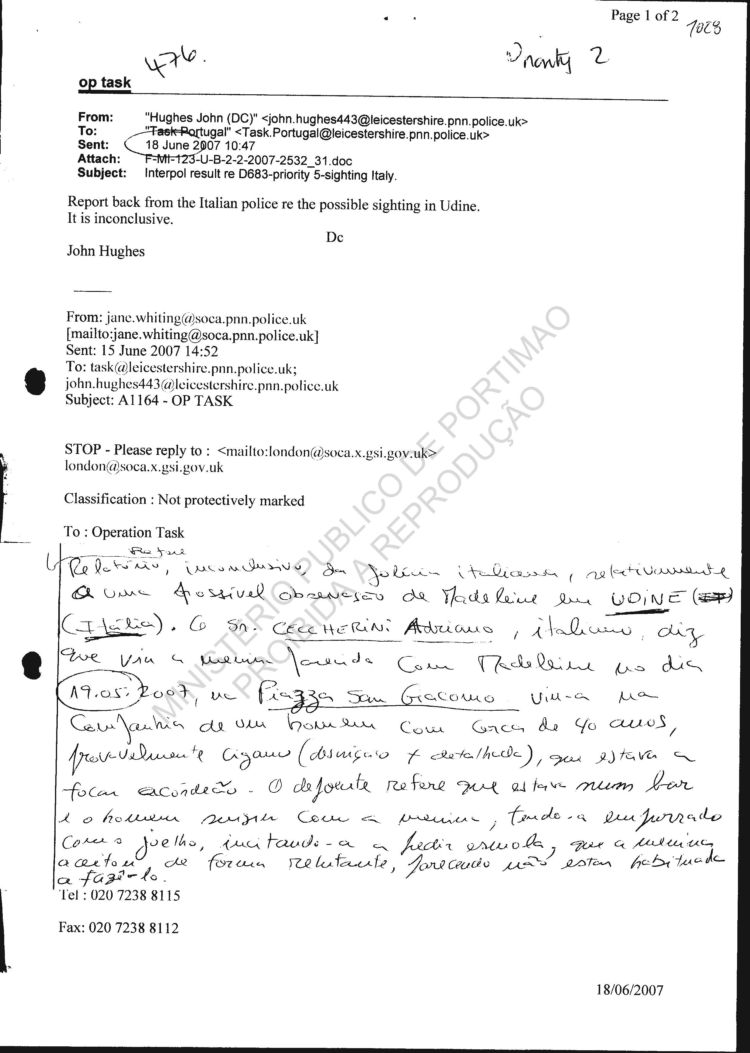 Page 1 of 2
1028
476.
Priority 2
op task
From: "Hughes John (DC)" <john.hughes443@leicestershire.pnn.police.uk>
To: "Task Portugal" <Task.Portugal@leicestershire.pnn.police.uk>
Sent: 18 June 2007 10:47
Attach: F-MI-123-U-B-2-2-2007-2532_31.doc
Subject: Interpol result re D683-priority 5-sighting Italy.
Report back from the Italian police re the possible sighting in Udine.
It is inconclusive.
Dc
John Hughes
From: jane.whiting@soca.pnn.police.uk
[mailto:jane.whiting@soca.pnn.police.uk]
Sent: 15 June 2007 14:52
To: task@leicestershire.pnn.police.uk;
john.hughes443@leicestershire.pnn.police.uk
Subject: A1164 - OP TASK
STOP - Please reply to : <mailto:london@soca.x.gsi.gov.uk>
london@soca.x.gsi.gov.uk
Classification : Not protectively marked
To : Operation Task
Refere
Relatório, inconclusivo, da polícia italiana, relativamente
a uma possível observação de Madeleine em UDINE
(Itália). O Sr. CECCHERINI Adriano, italiano, diz
que viu a menina parecida com Madeleine no dia
19.05.2007, na Piazza San Giacomo viu-a na
companhia de um homem com cerca de 40 anos,
provavelmente cigano (descrição + detalhada), que estava a
tocar acordeão. O depoente refere que estava num bar
e o homem surgiu com a menina, tendo-a empurrado
com o joelho, incitando-a a pedir esmola, que a menina
aceitou de forma relutante, parecendo não estar habituada
a fazê-lo.
Tel : 020 7238 8115
Fax: 020 7238 8112
18/06/2007
MINISTERIO PUBLICO DE PORTIMAO
PROIBIDA A REPRODUÇÃO